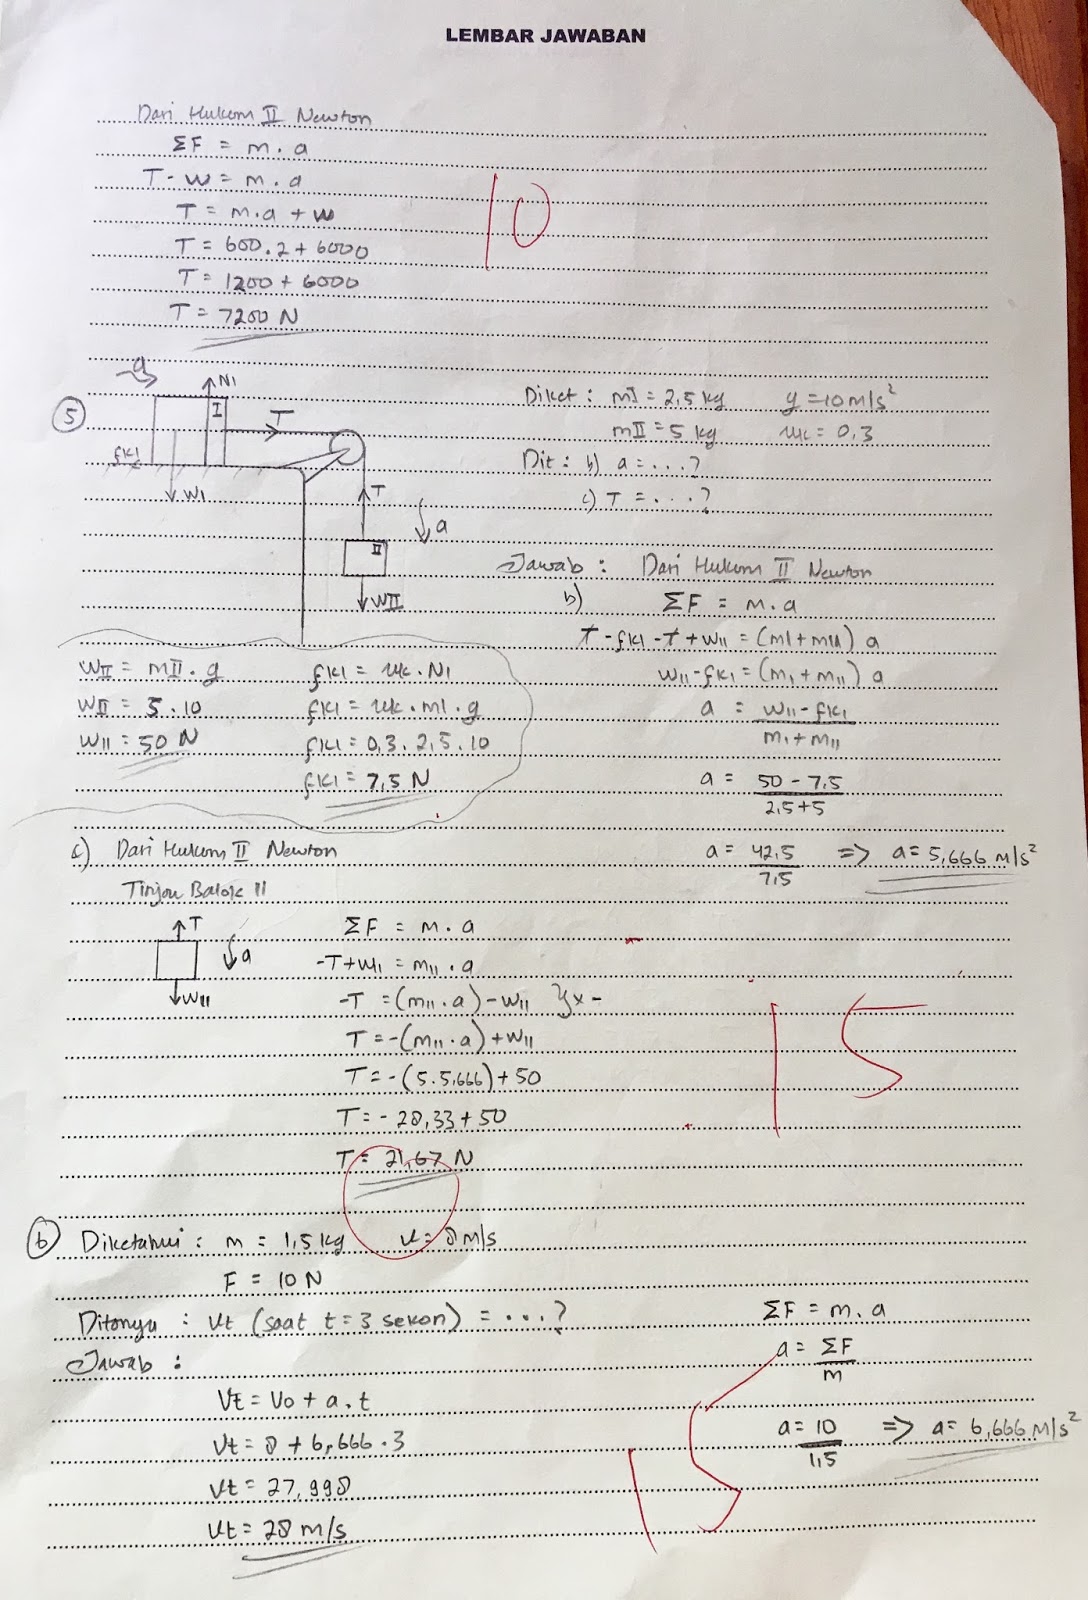 LEMBAR JAWABAN
Dari Hukum II Newton
ΣF = m . a
T - w = m . a
T = m.a + w
T = 600 . 2 + 6000
T = 1200 + 6000
T = 7200 N
10
5
a
N1
I
T
fk1
W1
T
a
II
WII
Diket : mI = 2,5 kg g = 10 m/s²
mII = 5 kg μk = 0,3
Dit : b) a = . . . ?
c) T = . . . . ?
Jawab : Dari Hukum II Newton
b) ΣF = m . a
T - fk1 - T + w11 = (m1 + m11) a
w11 - fk1 = (m1 + m11) a
a = w11 - fk1 / m1 + m11
a = 50 - 7,5 / 2,5 + 5
a = 42,5 / 7,5 => a = 5,666 m/s²
WII = mII . g
WII = 5 . 10
W11 = 50 N
fk1 = μk . N1
fk1 = μk . m1 . g
fk1 = 0,3 . 2,5 . 10
fk1 = 7,5 N
c) Dari Hukum II Newton
Tinjau Balok II
T
a
W11
ΣF = m . a
-T + w1 = m11 . a
-T = (m11 . a) - w11 } x -
T = -(m11 . a) + w11
T = -(5 . 5,666) + 50
T = - 28,33 + 50
T = 21,67 N
15
6 Diketahui : m = 1,5 kg v = 8 m/s
F = 10 N
Ditanya : Vt (saat t = 3 sekon) = . . . ?
Jawab :
Vt = Vo + a . t
Vt = 8 + 6,666 . 3
Vt = 27,998
Vt = 28 m/s
ΣF = m . a
a = ΣF / m
a = 10 / 1,5 => a = 6,666 m/s²
15